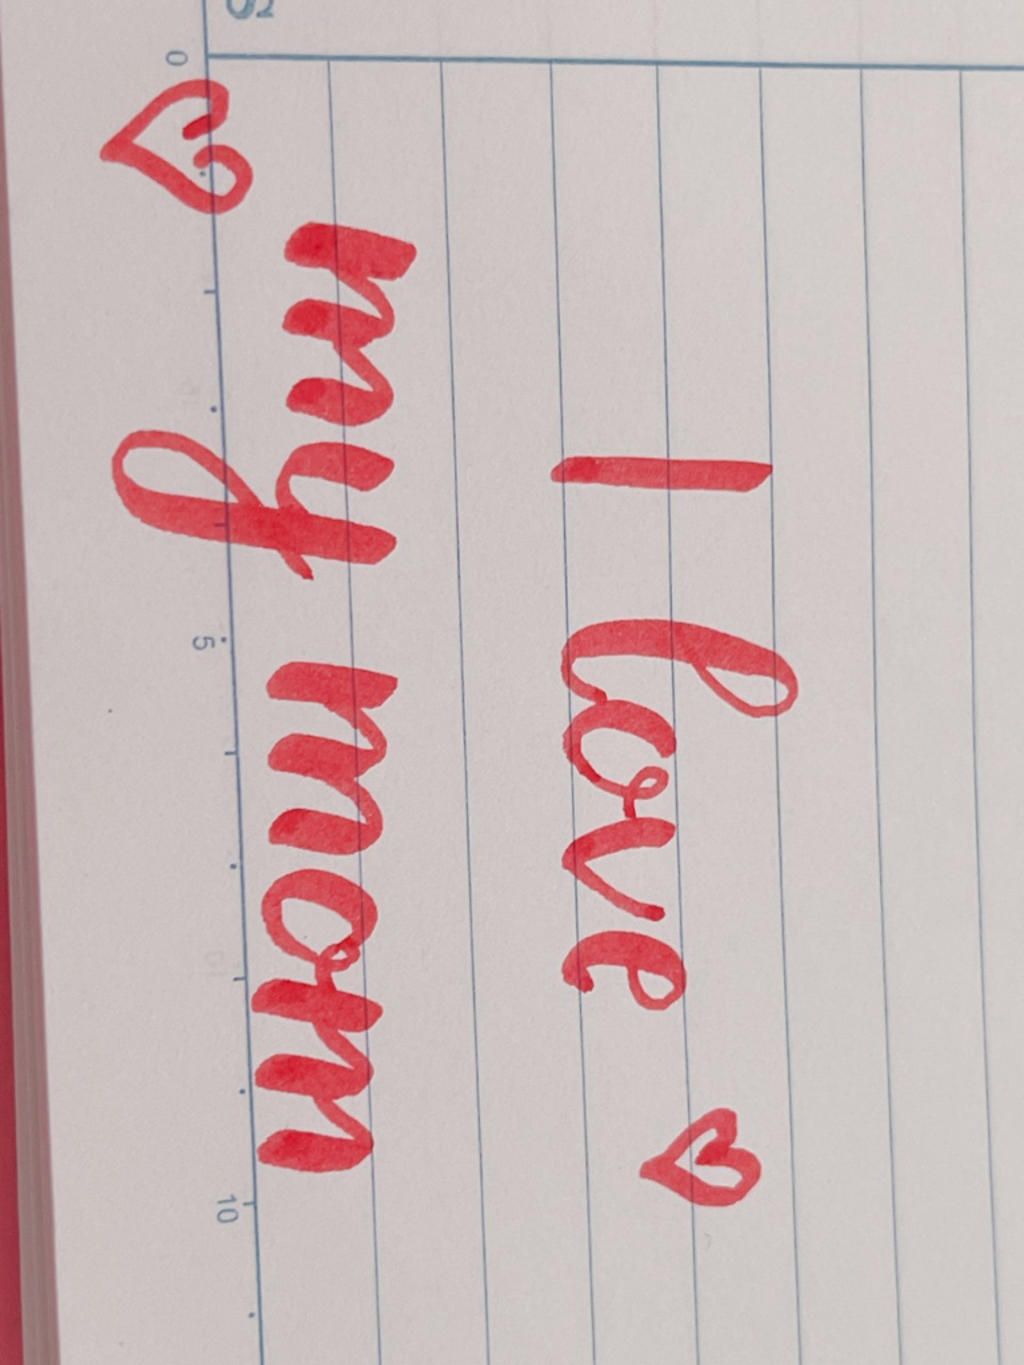 I love ♡
♡ my mom
0 5 10